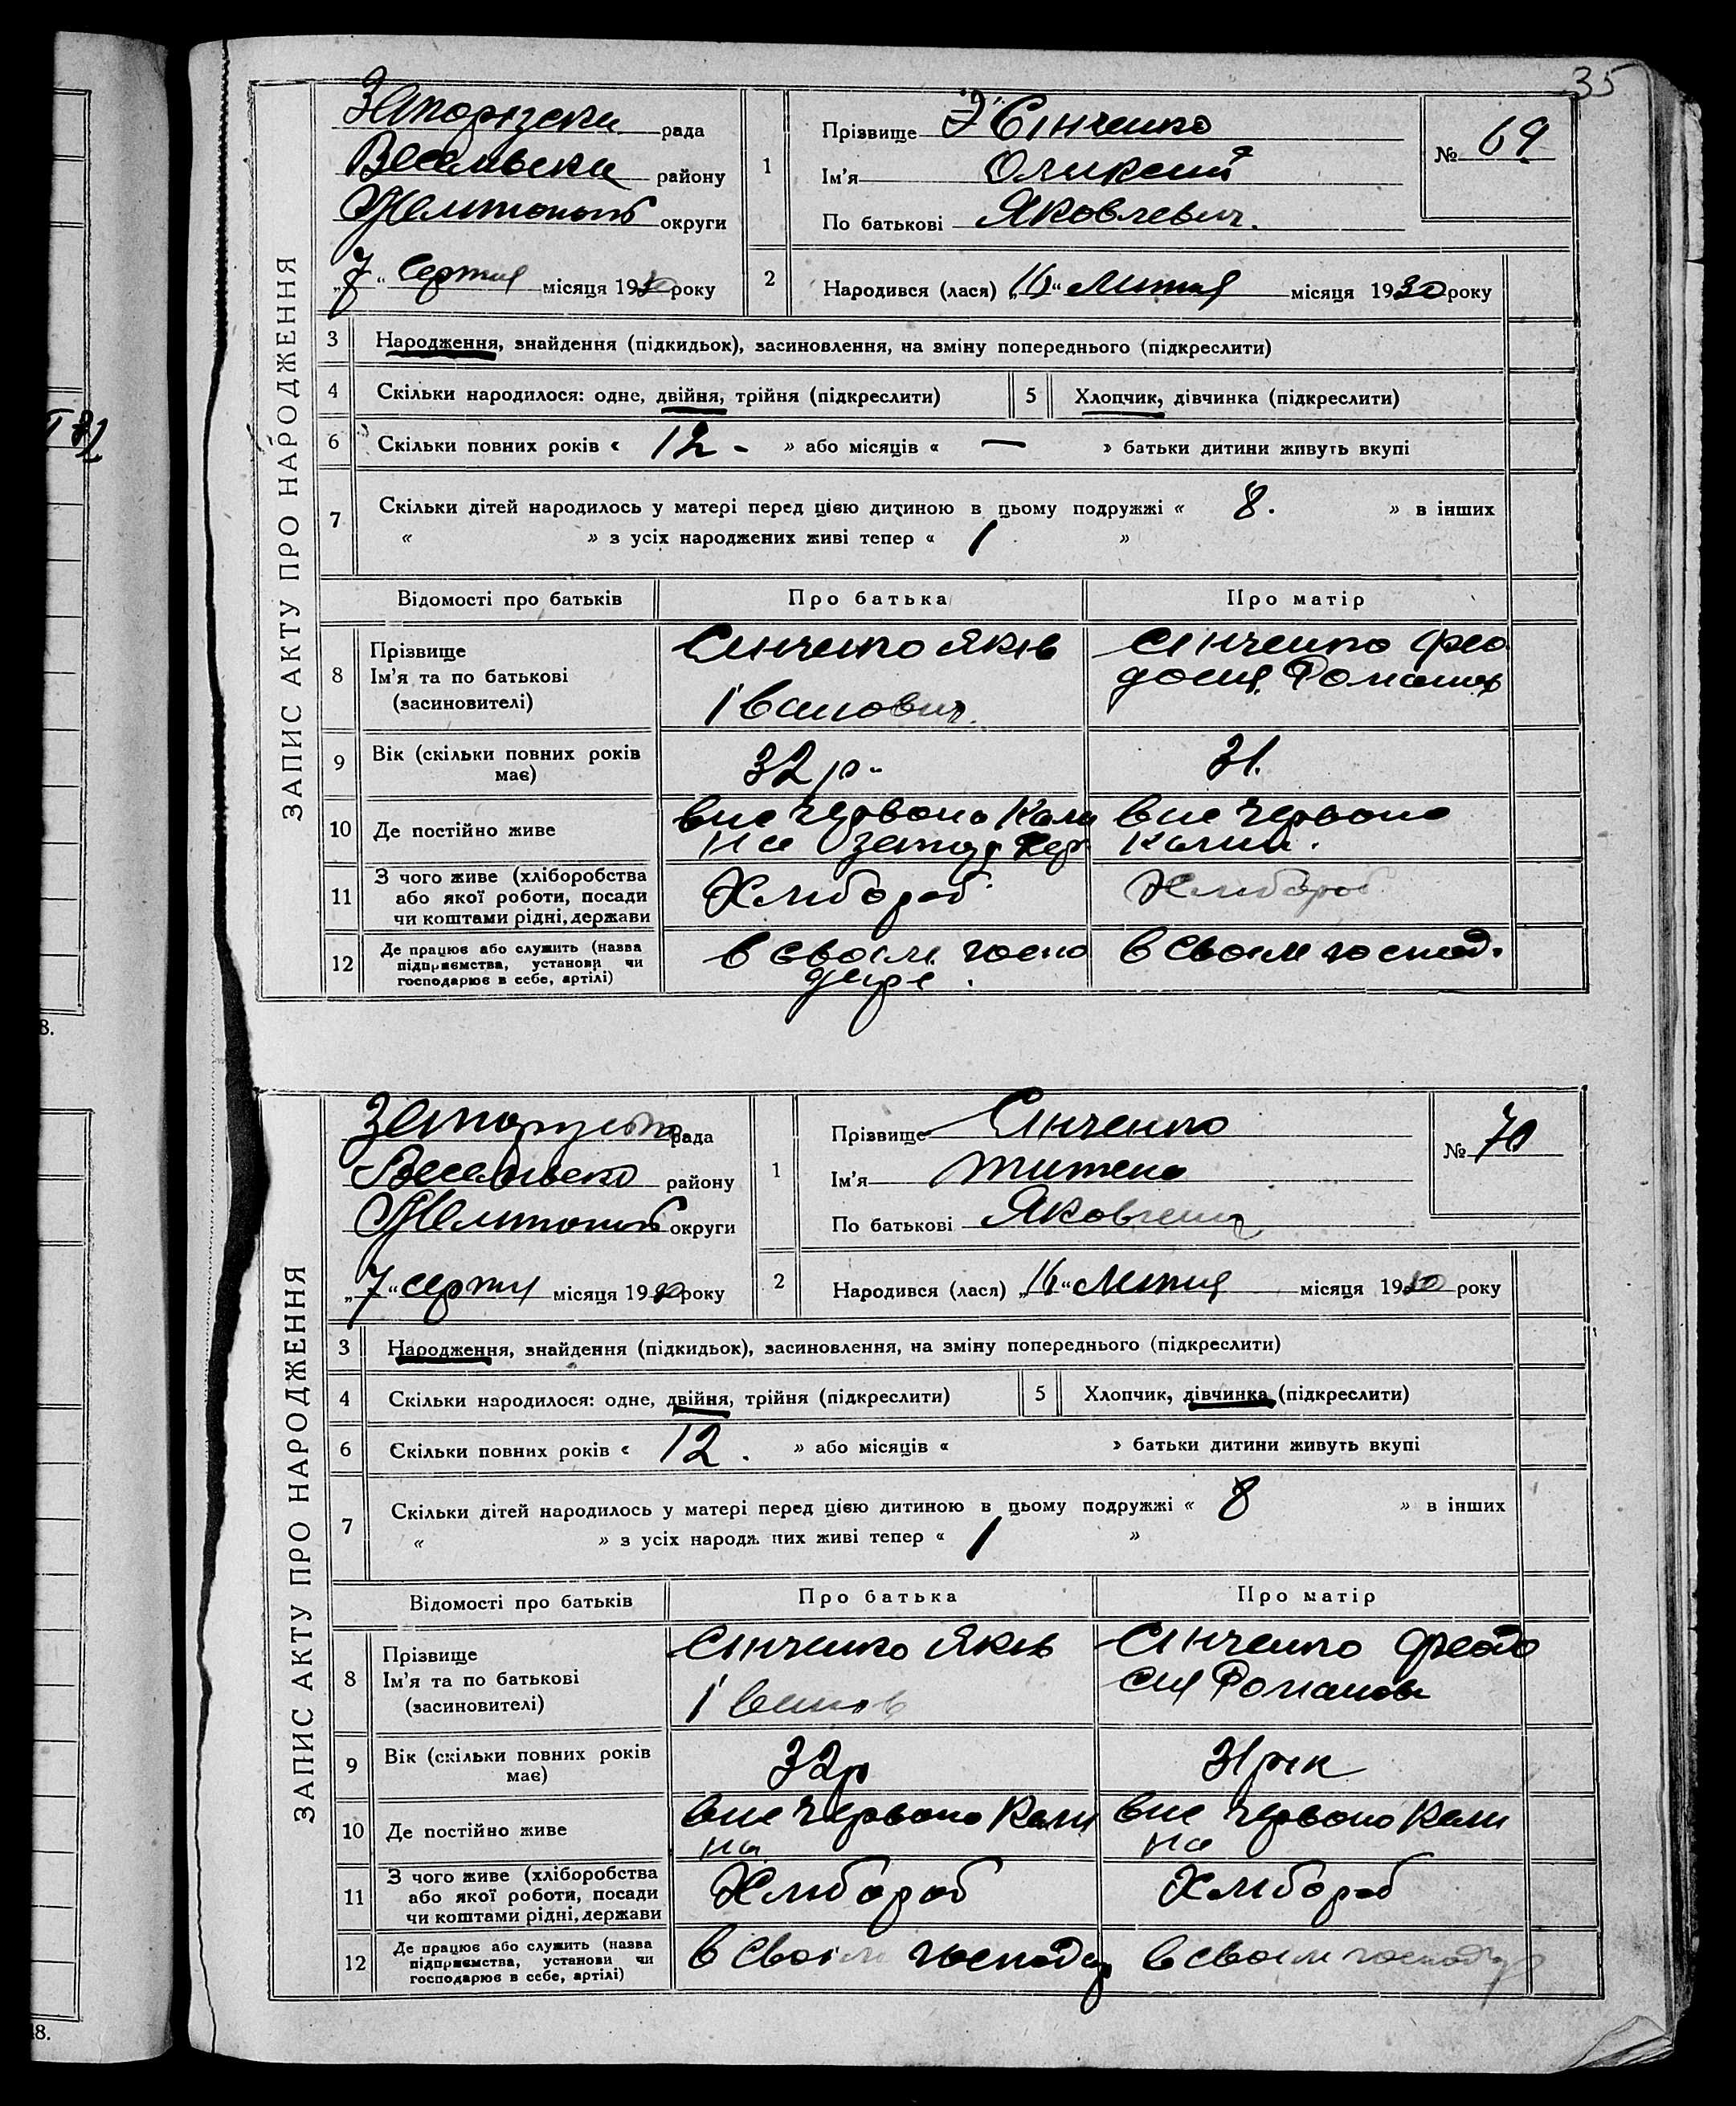 35
ЗАПИС АКТУ ПРО НАРОДЖЕННЯ
рада
району
округи
„7“ Серпня місяця 1930 року
1
Прізвище Сінченко
Ім'я Оликсий
По батькові Яковлевич.
№ 69
2
Народився (лася) „16“ Литня місяця 1930 року
3 Народження, знайдення (підкидьок), засиновлення, на зміну попереднього (підкреслити)
4 Скільки народилося: одне, двійня, трійня (підкреслити) 5 Хлопчик, дівчинка (підкреслити)
6 Скільки повних років « 12 - » або місяців « — » батьки дитини живуть вкупі
7 Скільки дітей народилось у матері перед цією дитиною в цьому подружжі « 8. » в інших
« » з усіх народжених живі тепер « 1 »
Відомості про батьків Про батька Про матір
8 Прізвище
Ім'я та по батькові
(засиновителі)
Синченко Яків
Іванович.
Сінченко Фео
досия Романов
9 Вік (скільки повних років
має)
32 р. 31.
10 Де постійно живе
вис Червона Кали
на
вис Червона
Калин.
11 З чого живе (хліборобства
або якої роботи, посади
чи коштами рідні, держави
Хлибороб Хлибороб
12 Де працює або служить (назва
підприємства, установи чи
господарює в себе, артілі)
в своїм госпо
дарі.
в своїм господ.
ЗАПИС АКТУ ПРО НАРОДЖЕННЯ
рада
району
округи
„7“ серпня місяця 1930 року
1
Прізвище Сінченко
Ім'я
По батькові
№ 70
2
Народився (лася) „16“ Литня місяця 1930 року
3 Народження, знайдення (підкидьок), засиновлення, на зміну попереднього (підкреслити)
4 Скільки народилося: одне, двійня, трійня (підкреслити) 5 Хлопчик, дівчинка (підкреслити)
6 Скільки повних років « 12. » або місяців « » батьки дитини живуть вкупі
7 Скільки дітей народилось у матері перед цією дитиною в цьому подружжі « 8 » в інших
« » з усіх народж них живі тепер « 1 »
Відомості про батьків Про батька Про матір
8 Прізвище
Ім'я та по батькові
(засиновителі)
Сінченко Яків
Іванов
Сінченко Феодо
сия Романов
9 Вік (скільки повних років
має)
32р 31 рік
10 Де постійно живе
вис Червона Кали
на
вис Червона Кали
на
11 З чого живе (хліборобства
або якої роботи, посади
чи коштами рідні, держави
Хлибороб Хлибороб
12 Де працює або служить (назва
підприємства, установи чи
господарює в себе, артілі)
в своїм господар в своїм господар